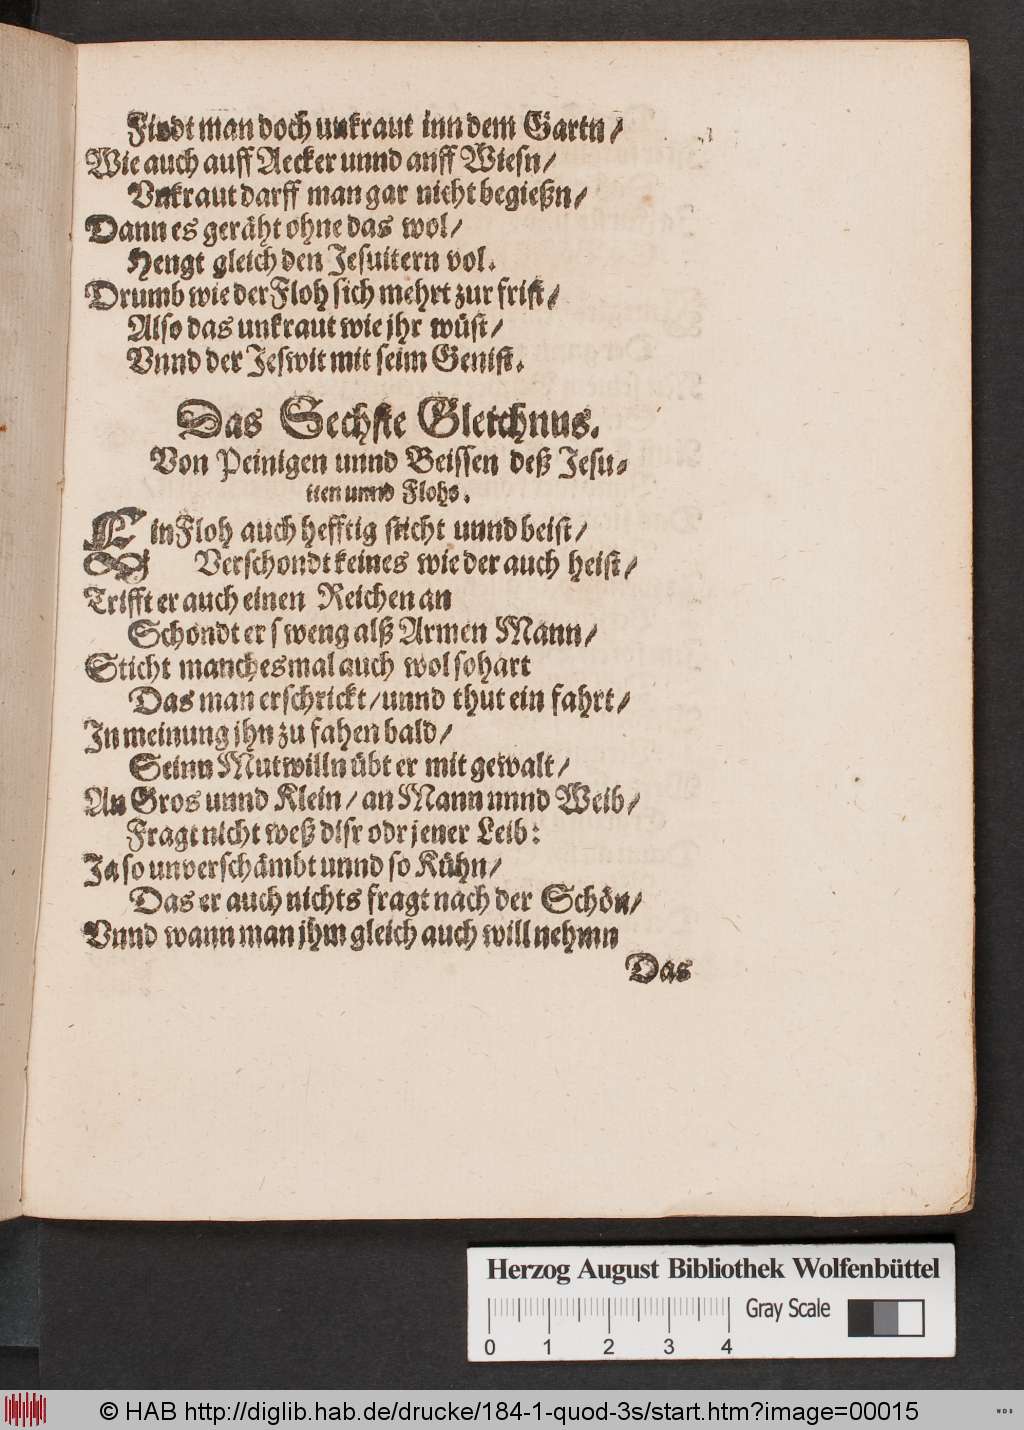 Findt man doch unkraut inn dem Gartn /
Wie auch auff Aecker unnd anff Wiesn /
Vnkraut darff man gar nicht begießn /
Dann es geräht ohne das wol /
Hengt gleich den Jesuitern vol.
Drumb wie der Floh sich mehrt zur frist /
Also das unkraut wie jhr wüst /
Vnnd der Jeswit mit seim Genist.
Das Sechste Gleichnus.
Von Peinigen unnd Beissen deß Jesu-
iten unnd Flohs.
Ein Floh auch hefftig sticht unnd beist /
Verschondt keines wie der auch heist /
Trifft er auch einen Reichen an
Schondt er s weng alß Armen Mann /
Sticht manchesmal auch wol so hart
Das man erschrickt / unnd thut ein fahrt /
In meinung jhn zu fahen bald /
Seinn Mutwilln übt er mit gewalt /
An Gros unnd Klein / an Mann unnd Weib /
Fragt nicht weß disr odr jener Leib :
Ja so unverschämbt unnd so Kühn /
Das er auch nichts fragt nach der Schön /
Vnnd wann man jhm gleich auch will nehmn
Das
Herzog August Bibliothek Wolfenbüttel
Gray Scale
0 1 2 3 4
© HAB http://diglib.hab.de/drucke/184-1-quod-3s/start.htm?image=00015
WDB